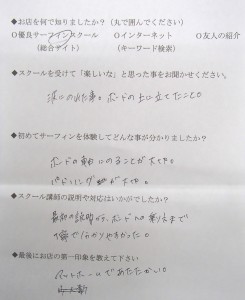 ◆お店を何で知りましたか？（丸で囲んでください）
○優良サーフィンスクール ○インターネット ○友人の紹介
（総合サイト） （キーワード検索）
◆スクールを受けて「楽しいな」と思った事をお聞かせください。
波にのれた事。ボードの上に立てたこと。
◆初めてサーフィンを体験してどんな事が分かりましたか？
ボードの
にのることが大事。
パドリングが大事。
◆スクール講師の説明や対応はいかがでしたか？
最初の説明から、ボードへの乗り方まで
分かりやすかった。
◆最後にお店の第一印象を教えて下さい
アットホームであたたかい。